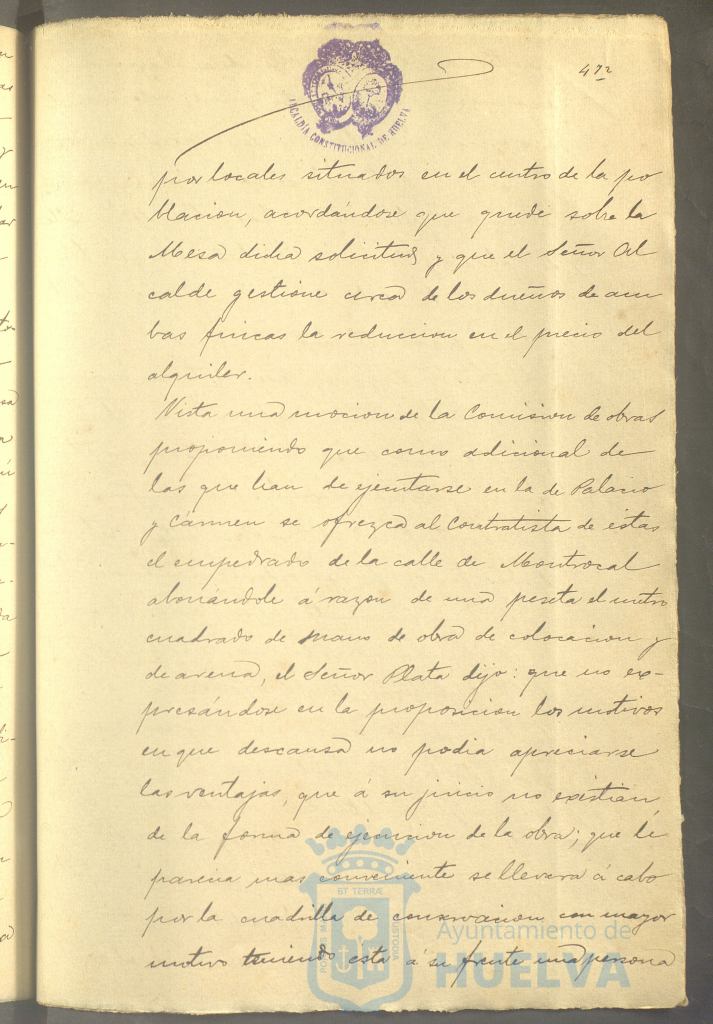 472
ALCALDIA CONSTITUCIONAL DE HUELVA
por locales situados en el centro de la po
blacion, acordándose que quede sobre la
Mesa dicha solicitud y que el Señor Al
calde gestione cerca de los dueños de am
bas fincas la reduccion en el precio del
alquiler.
Vista una mocion de la Comision de obras
proponiendo que como adicional de
las que han de ejecutarse en la de Palacio
y Cármen se ofrezca al Contratista de estas
el empedrado de la calle de Montrocal
abonándole á razon de una peseta el metro
cuadrado de mano de obra de colocacion y
de arena, el Señor Plata dijo: que no ex-
presándose en la proposicion los motivos
en que descansa no podia apreciarse
las ventajas, que á su juicio no existian
de la forma de ejecucion de la obra; que le
parecia mas conveniente se llevara á cabo
por la cuadrilla de conservacion con mayor
motivo teniendo esta á su frente una persona
PORTUS MARIS ET TERRÆ CUSTODIA
Ayuntamiento de
HUELVA